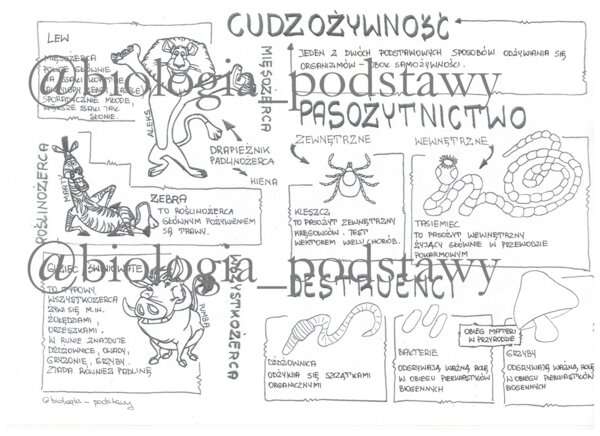 CUDZOŻYWNOŚĆ
JEDEN Z DWÓCH PODSTAWOWYCH SPOSOBÓW ODŻYWIANIA SIĘ
ORGANIZMÓW - OBOK SAMOŻYWNOŚCI.
LEW
MIĘSOŻERCA
POLUJE GŁÓWNIE
NA SSAKI KOPYTNE
SPORADYCZNIE MŁODE,
SŁONIE.
ALEKS
MIĘSOŻERCA
DRAPIEŻNIK
PADLINOŻERCA
HIENA
@biologia_podstawy
ROŚLINOŻERCA
MARTY
ZEBRA
TO ROŚLINOŻERCA
GŁÓWNYM POŻYWIENIEM
SĄ TRAWY.
PASOŻYTNICTWO
ZEWNĘTRZNE
WEWNĘTRZNE
KLESZCZ
TO PASOŻYT ZEWNĘTRZNY
KRĘGOWCÓW. JEST
WEKTOREM WIELU CHORÓB.
TASIEMIEC
TO PASOŻYT WEWNĘTRZNY
ŻYJĄCY GŁÓWNIE W PRZEWODZIE
POKARMOWYM
@biologia_podstawy
GUZIEC ŚWINIOWATE
TO TYPOWY
WSZYSTKOŻERCA
ŻYWI SIĘ M.IN.
ŻOŁĘDZIAMI,
ORZESZKAMI.
W RUNIE ZNAJDUJE
DŻDŻOWNICE, OWADY,
GRYZONIE, GRZYBY.
ZJADA RÓWNIEŻ PADLINĘ
PUMBA
WSZYSTKOŻERCA
DESTRUENCI
DŻDŻOWNICA
ODŻYWIA SIĘ SZCZĄTKAMI
ORGANICZNYMI
BAKTERIE
ODGRYWAJĄ WAŻNĄ ROLĘ
W OBIEGU PIERWIASTKÓW
BIOGENNYCH
OBIEG MATERII
W PRZYRODZIE
GRZYBY
ODGRYWAJĄ WAŻNĄ ROLĘ
W OBIEGU PIERWIASTKÓW
BIOGENNYCH
@biologia_podstawy